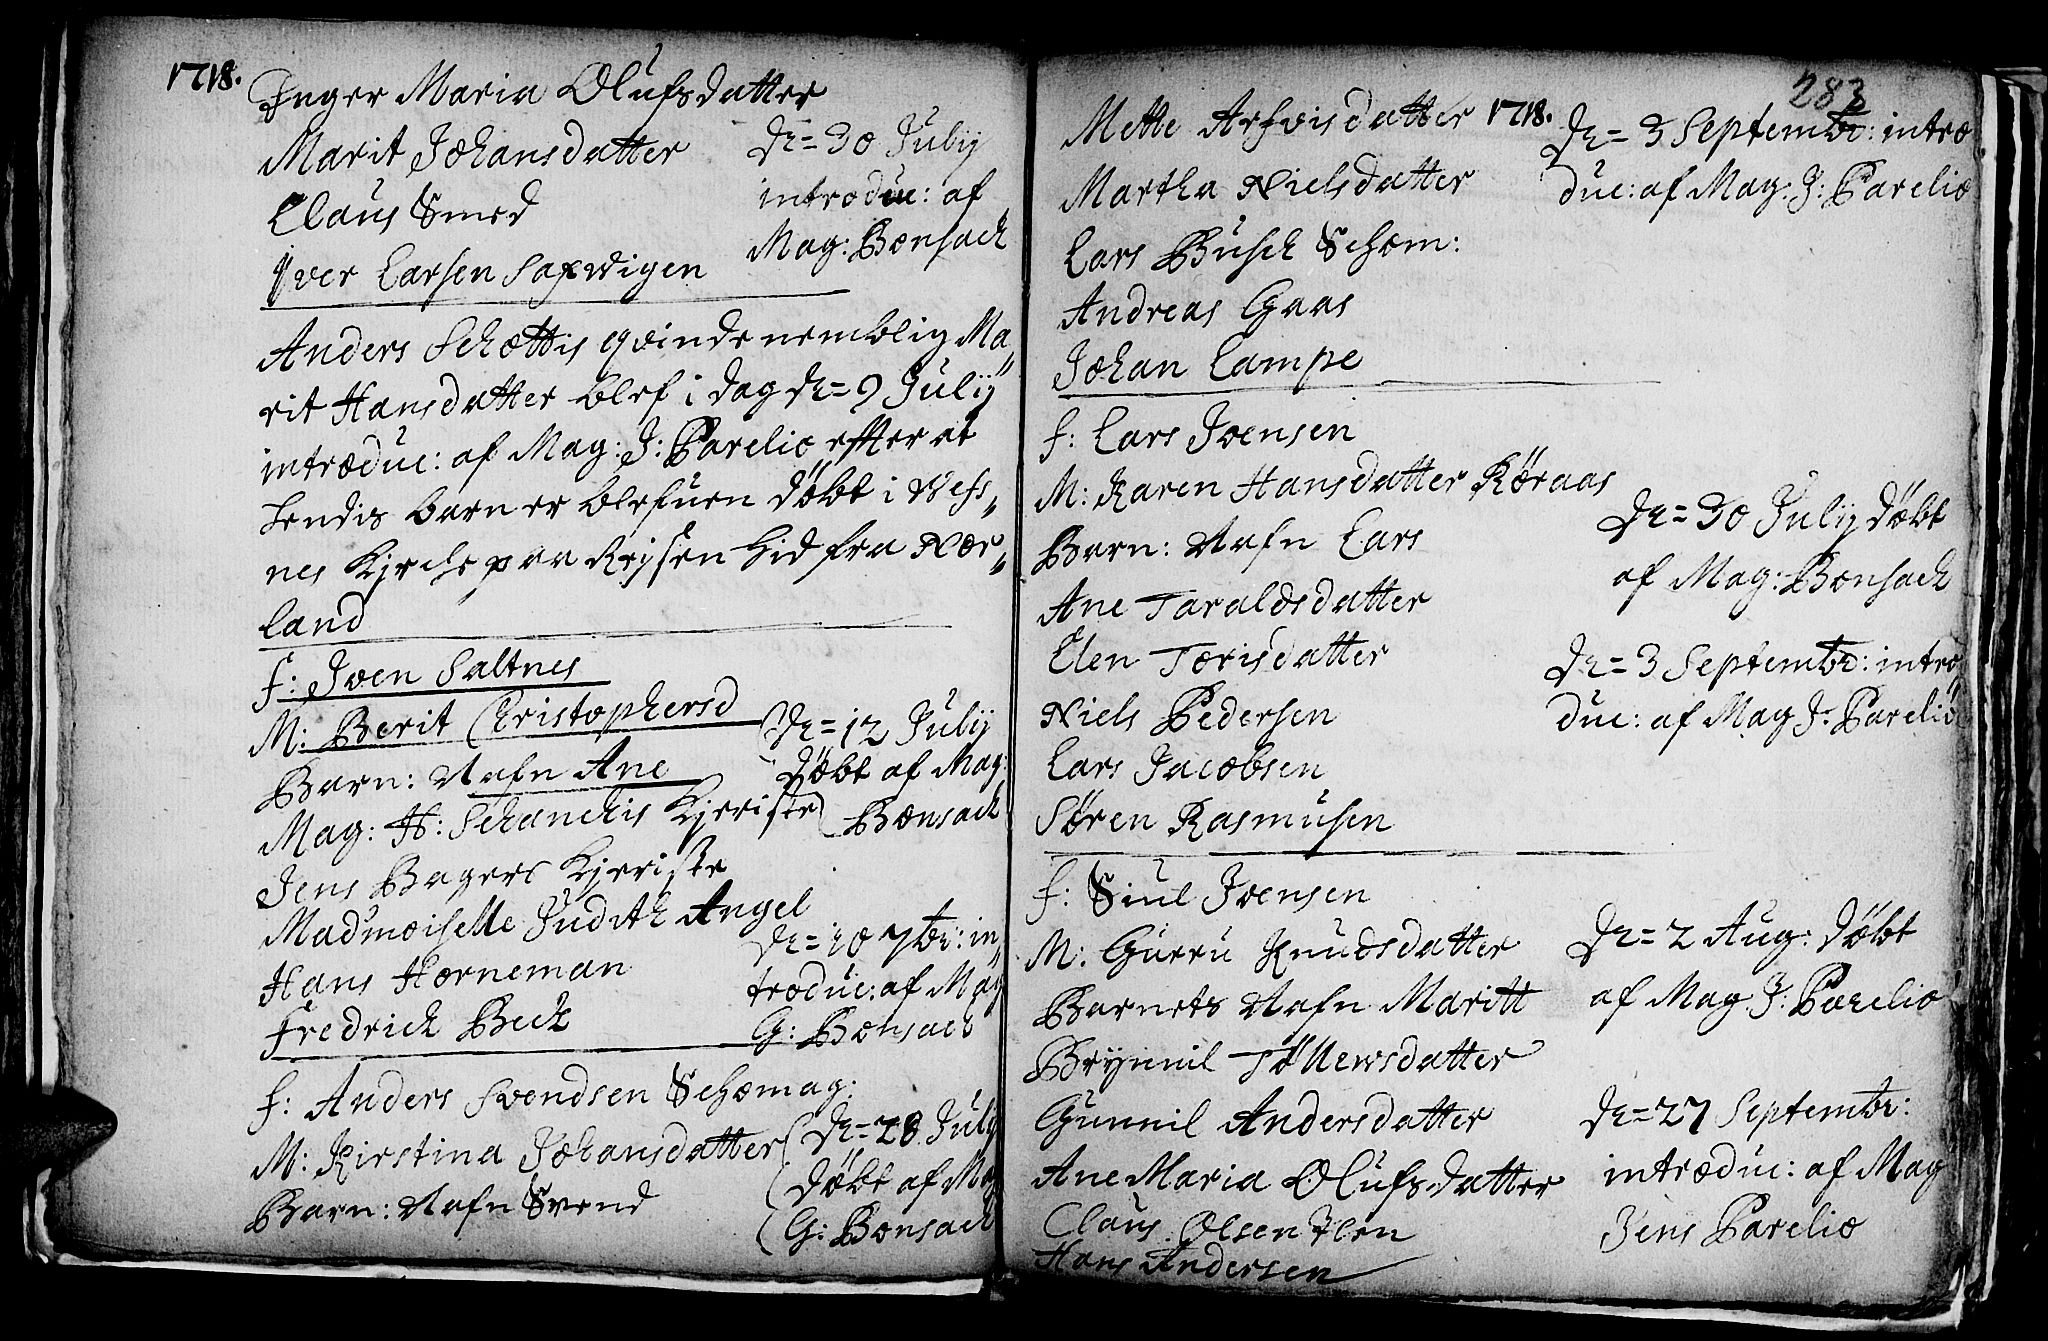 1718.
Inger Maria Olufsdatter
Marit Johansdatter
Claus Smed
Iver Larsen Saxvigen
Dn= 30 Julij
introduc: af
Mag: Bonsach
Anders Schottis qvinde nemblig Ma„
rit Hansdatter blef i dag dn= 9 Julij
introduc: af Mag: J: Parelio efter at
hendis barn er blefuen døbt i Ness„
nes Kirche paa Reysen hid fra Nor„
land
f: Joen Saltnes
M: Berit Christophersd
Barn: Nafn Ane
Mag: H: Schanchis Kjeriste
Jens Bagers Kjeriste
Madmoiselle Judith Angel
Hans Horneman
Fredrich Bech
Dn= 12 Julij
Døbt af Mag:
Bonsach
Dn= 10 7br: in„
troduc: af Mag
G: Bonsach
f: Anders Svendsen Schomag:
M: Kirstina Johansdatter
Barn: Nafn Svend
Dn= 28 Julij
Døbt af Mag
G: Bonsach
283
1718.
Mette Arfvisdatter
Martha Nielsdatter
Lars Busch Schom:
Andreas Gaas
Johan Lampe
Dn= 3 Septembr: intro
duc: af Mag. J: Parelio
f: Lars Joensen
M: Karen Hansdatter Røraas
Barn: Nafn Lars
Ane Taraldsdatter
Elen Torisdatter
Niels Pedersen
Lars Jacobsen
Søren Rasmusen
Dn= 30 Julij Døbt
af Mag: Bonsach
Dn= 3 Septembr: intro
duc: af Mag J: Parelio
f: Siul Joensen
M: Gurru Knudsdatter
Barnets Nafn Maritt
Brynnil Tøllewsdatter
Gunnil Andersdatter
Ane Maria Olufsdatter
Claus Olsen Ilen
Hans Andersen
Dn= 2 Aug: Døbt
af Mag. J: Parelio
Dn= 27 Septembr:
introduc: af Mag
Jens Parelio